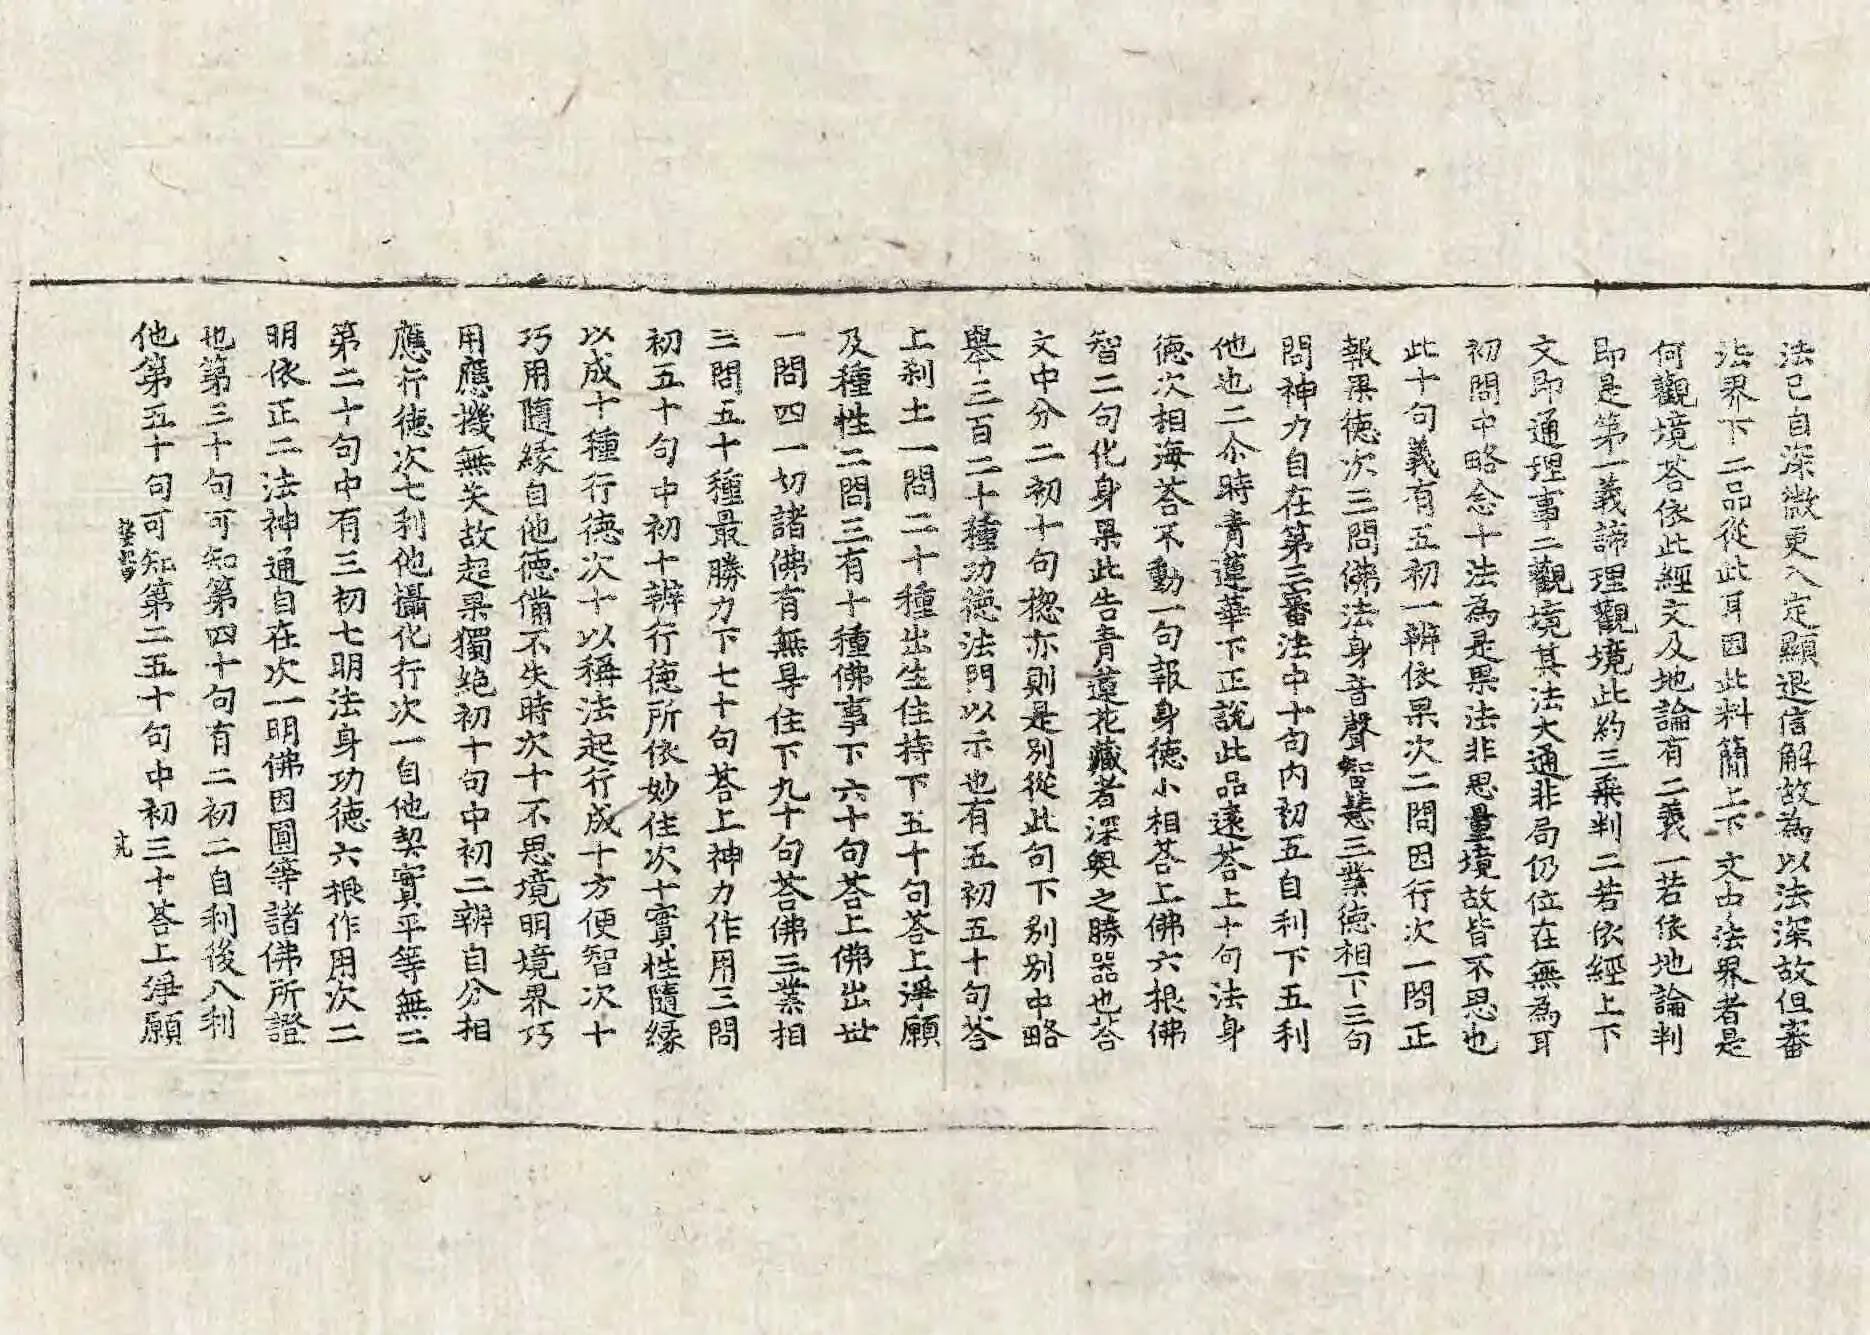 法已自深微更入定顯退信解故為以法深故但審
法界下二品從此耳因此料簡上下文由法界者是
何觀境荅依此經文及地論有二義一若依地論判
即是第一義諦理觀境此約三乘判二若依經上下
文即通理事二觀境其法大通非局仍位在無為耳
初問中略念十法為是果法非思量境故皆不思也
此十句義有五初一辨依果次二問因行次一問正
報果德次三問佛法身音聲智慧三業德相下三句
問神力自在第三審法中十句內初五自利下五利
他也二尒時青蓮華下正說此品遠荅上十句法身
德次相海荅不動一句報身德小相荅上佛六根佛
智二句化身果此告青蓮花藏者深奧之勝器也荅
文中分二初十句揔亦則是別從此句下別別中略
舉三百二十種功德法門以示也有五初五十句荅
上刹土一問二十種出生住持下五十句荅上淨願
及種性二問三有十種佛事下六十句荅上佛出世
一問四一切諸佛有無㝵住下九十句荅佛三業相
三問五十種最勝力下七十句荅上神力作用三問
初五十句中初十辨行德所依妙住次十實性隨緣
以成十種行德次十以稱法起行成十方便智次十
巧用隨緣自他德備不失時次十不思境明境界巧
用應機無失故起果獨絕初十句中初二辨自分相
應行德次七利他攝化行次一自他契實平等無二
第二十句中有三初七明法身功德六根作用次二
明依正二法神通自在次一明佛因圓等諸佛所證
也第三十句可知第四十句有二初二自利後八利
他第五十句可知第二五十句中初三十荅上淨願
十九